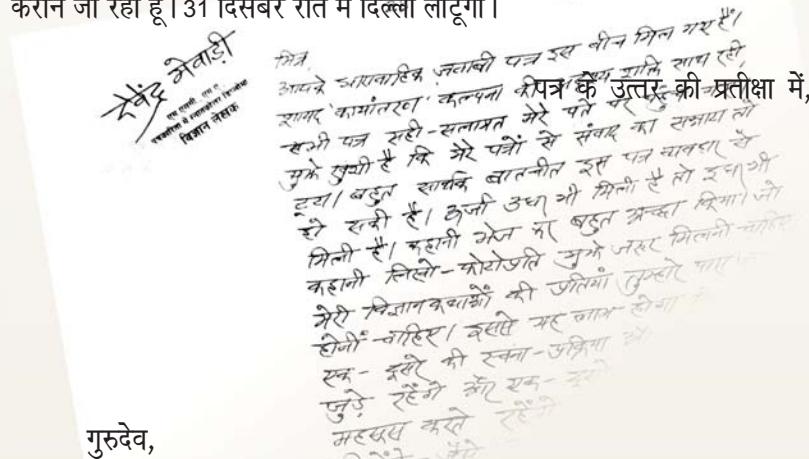 कराने जा रहा हूँ। 31 दिसंबर रात में दिल्ली लौटूंगा।
देवेंद्र मेवाड़ी
विज्ञान लेखक
मित्र,
आपके धारावाहिक जवाबी पत्र इस बीच मिल गए हैं।
शायद 'कायांतरण' कल्पना की शक्ति साथ रही,
पत्र के उत्तर की प्रतीक्षा में,
सभी पत्र सही-सलामत मेरे पते पर
मुझे खुशी है कि मेरे पत्रों से संवाद का सन्नाटा तो
टूटा। बहुत सार्थक बातचीत इस पत्र व्यवहार से
हो सकी है। ऊर्जा उधर भी मिली है तो इधर भी
मिली है। कहानी भेज कर बहुत अच्छा किया। जो
कहानी लिखो-फोटोप्रति मुझे जरूर मिलनी चाहिए
मेरी विज्ञान कथाओं की प्रतियां तुम्हारे पास
होनी चाहिए। इससे यह लाभ होगा
एक-दूसरे की रचना-प्रक्रिया
जुड़े रहेंगे और एक-दूसरे
महसूस करते रहेंगे
गुरुदेव,